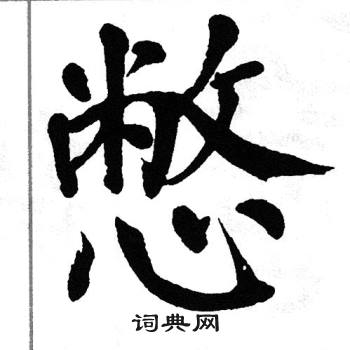 憋
词典网